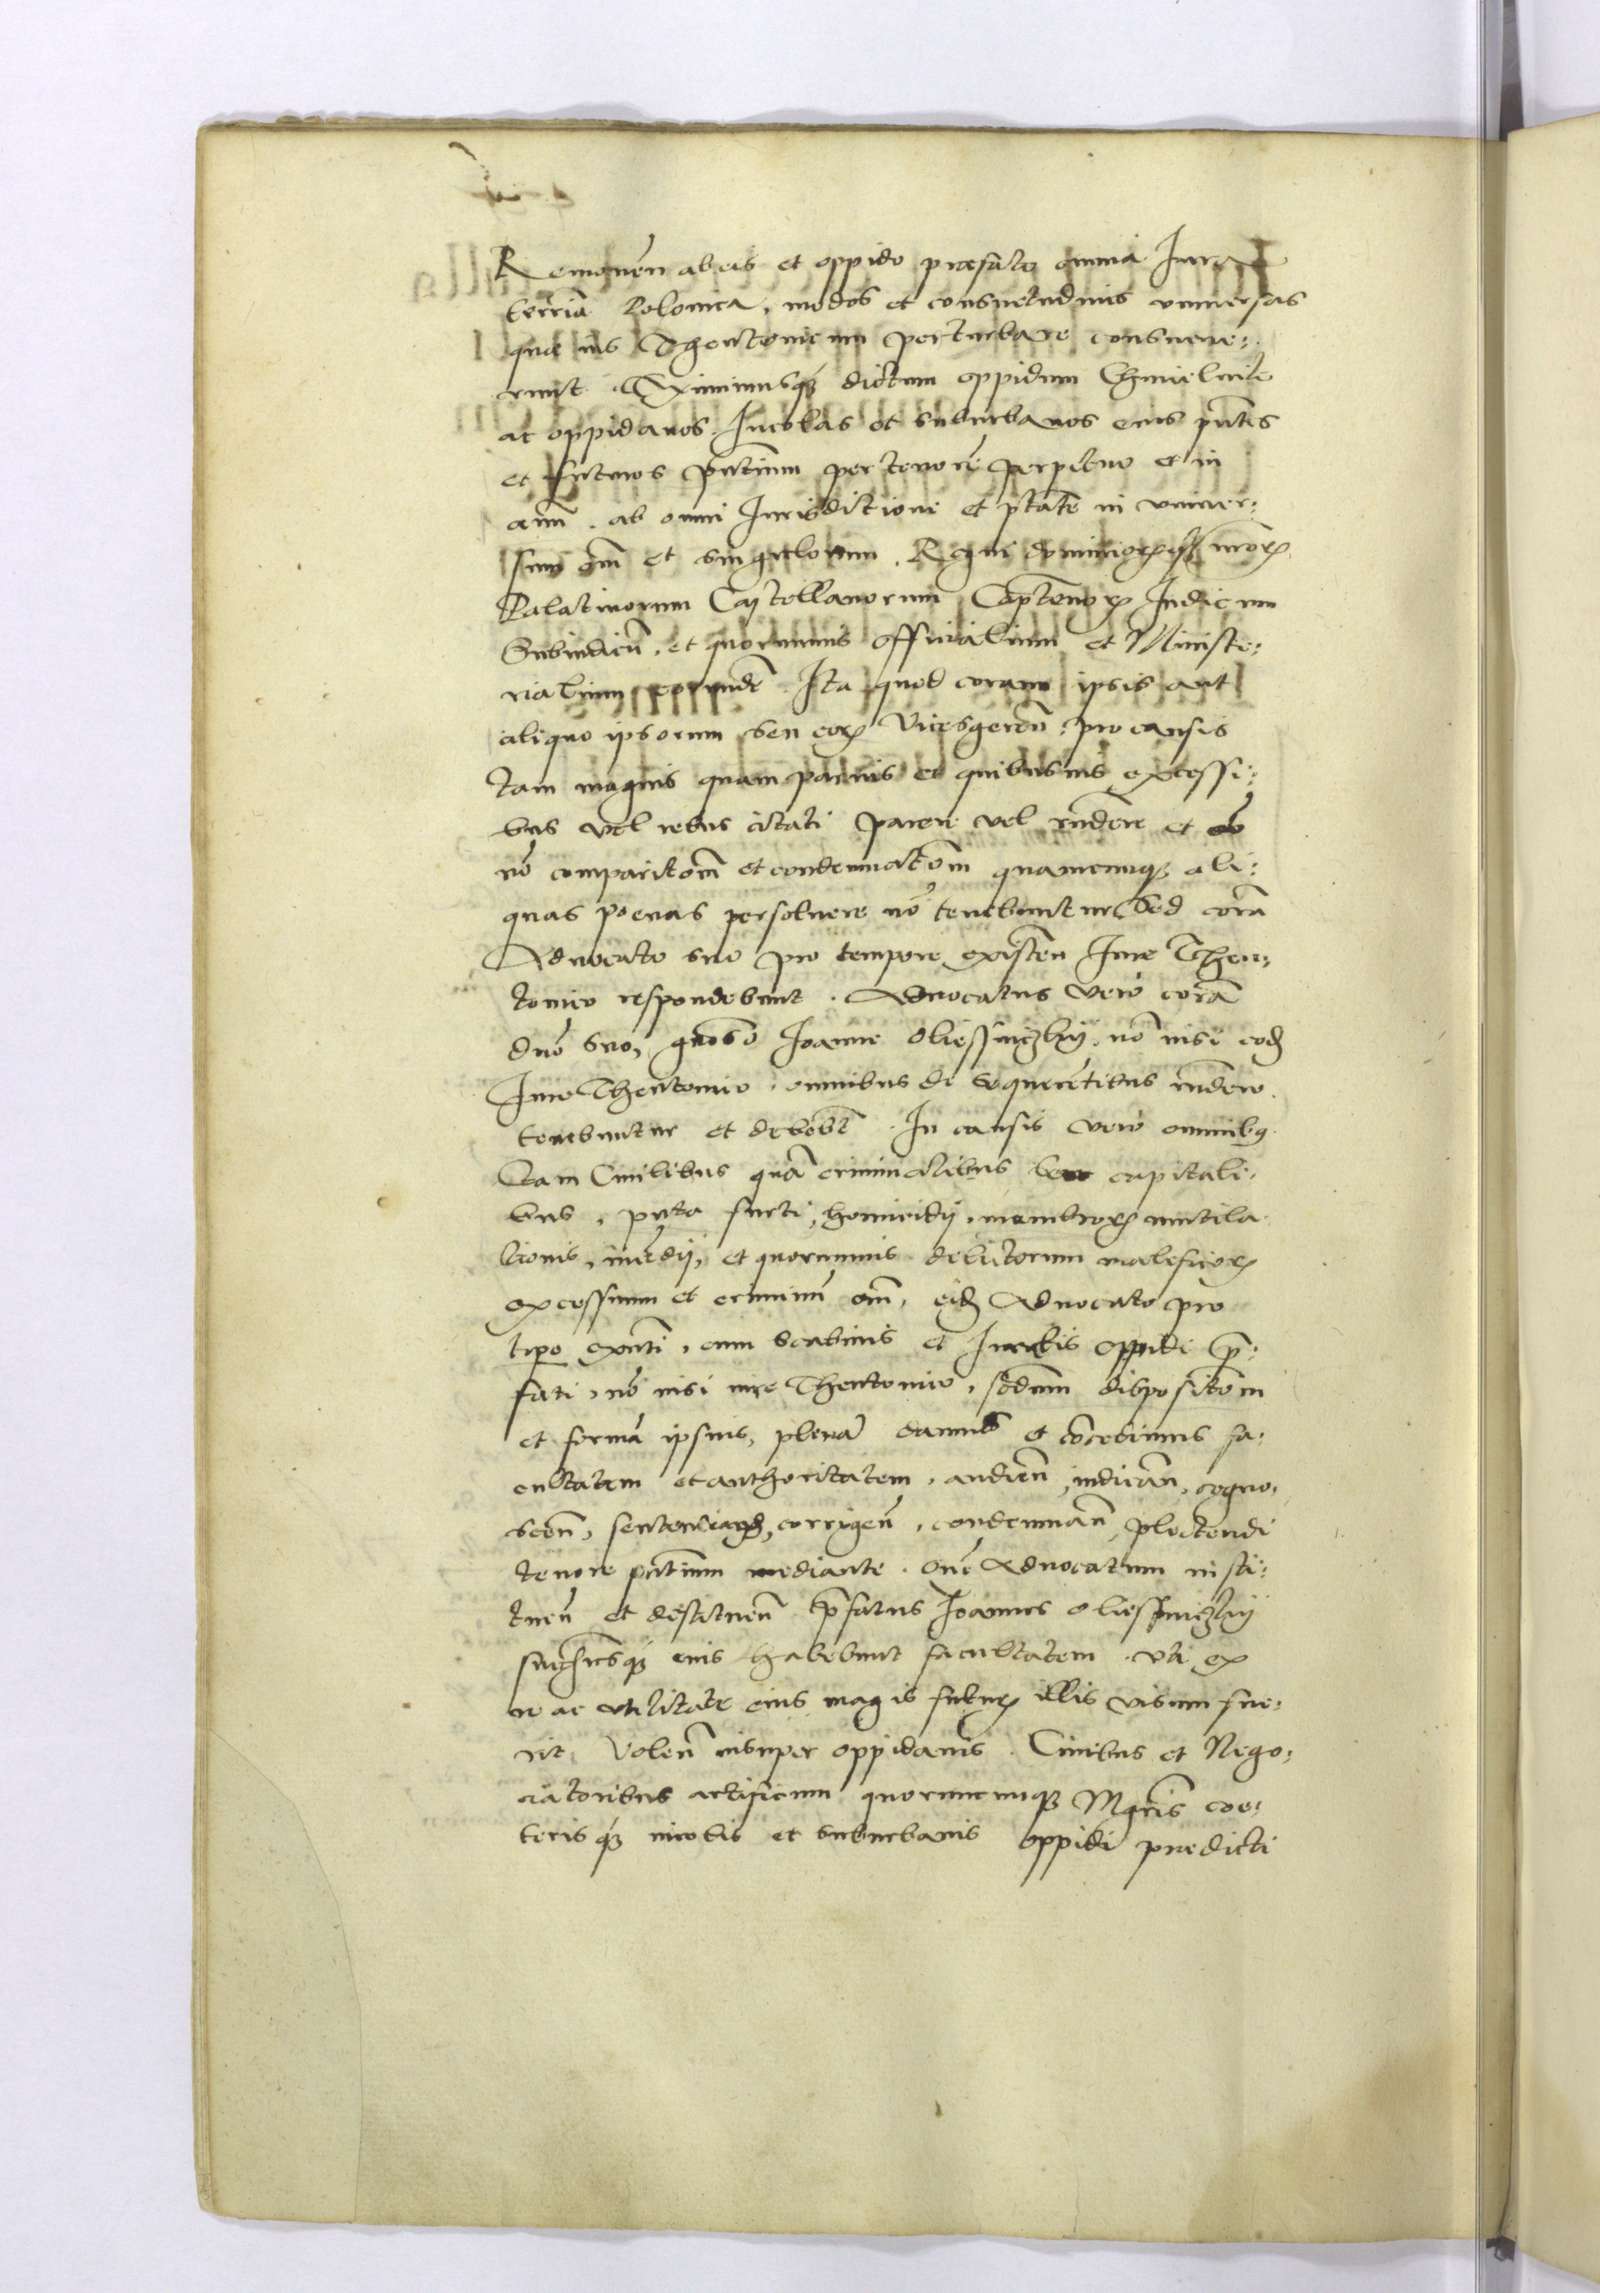 Remouen̄ ab eis et oppido præfato omnia Iura
terrīa Polonica, modos et consuetudinis vniuersas
quæ ius Thentonicum perturbare consueue:
runt. Eximimusq₃ dictum oppidum Chmielnik
ac oppidanos. Incolas et suburbanos eius pn̄tes
et futuros pn̄tium per tenorē perpetuo et in
æuū. ab omni Iurisdictione et ptāte in vniuer:
sum om̄ et singulorum. Regni dominiorꝝ nr̄orꝝ
Palatinorum Castellanorum, Capitenorꝝ Iudicum
Subiudicū, et quorumuis officialium et Ministe:
rialium eorundē. Ita quod coram ipsis aut
aliquo ipsorum seu eorꝝ Vicesgeren̄: pro causis
tam magnis quam paruis et quibusuis excessi:
bus vel rebus citati parere vel rn̄dere et ob
nō comparitōm et condemnatōm quamcunq₃ ali:
quas poenas persoluere nō tenebuntur. Sed corā
Aduocato suo pro tempore existen̄ Iure Theu:
tonico respondebunt. Aduocatus verò corā
dnō suo, gnōso Ioanne Oliessniczkij, nō nisi eod
Iure Theutonico. omnibus de se querētibus rn̄dere.
tenebuntur et debebt̄. In causis verò omnibꝫ
tam Ciuilibus quā criminalibus capitali:
bus, puta furti, homicidij, membrorꝝ mutila
tionis, incēdij, et quorumuis delictorum maleficiorꝝ
excessuum et criminū om̄, eid Aduocato pro
tipo exn̄ti, cum scabinis et Iuratis oppidi p̄:
fati, nō nisi iure Theutonico, scdnm̄ dispositōm
et formā ipsius, plenā damus et cōcedimus fa:
cultatem et authoritatem, audien̄, iudican̄, cogno:
scen̄, sentenciand, corrigen̄, condemnan̄, plectendi
tenore pn̄tium mediante. Quē Aduocatum insti:
tuen̄ et destituen̄ p̄fatus Ioannes Oliessniczkij
successoresq₃ eius habebunt facultatem. vti ex
re ac vtilitate eius magis futurꝝ illis visum fue:
rit. Volen̄ insuper oppidanis. Ciuibus et Nego:
ciatoribus artificum quoruncunq₃ Mgr̄is coe:
terisq₃ incolis et suburbanis oppidi predicti